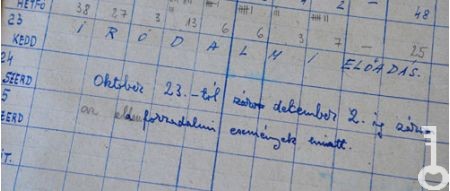 HÉTFŐ 38 27 3 13 6 6 3 7 — 25
2 — 48
23
KEDD I R O D A L M I ELŐADÁS.
24
SZERD
Október 23.-tól december 2.-ig zárva
25
az ellenforradalmi események miatt.